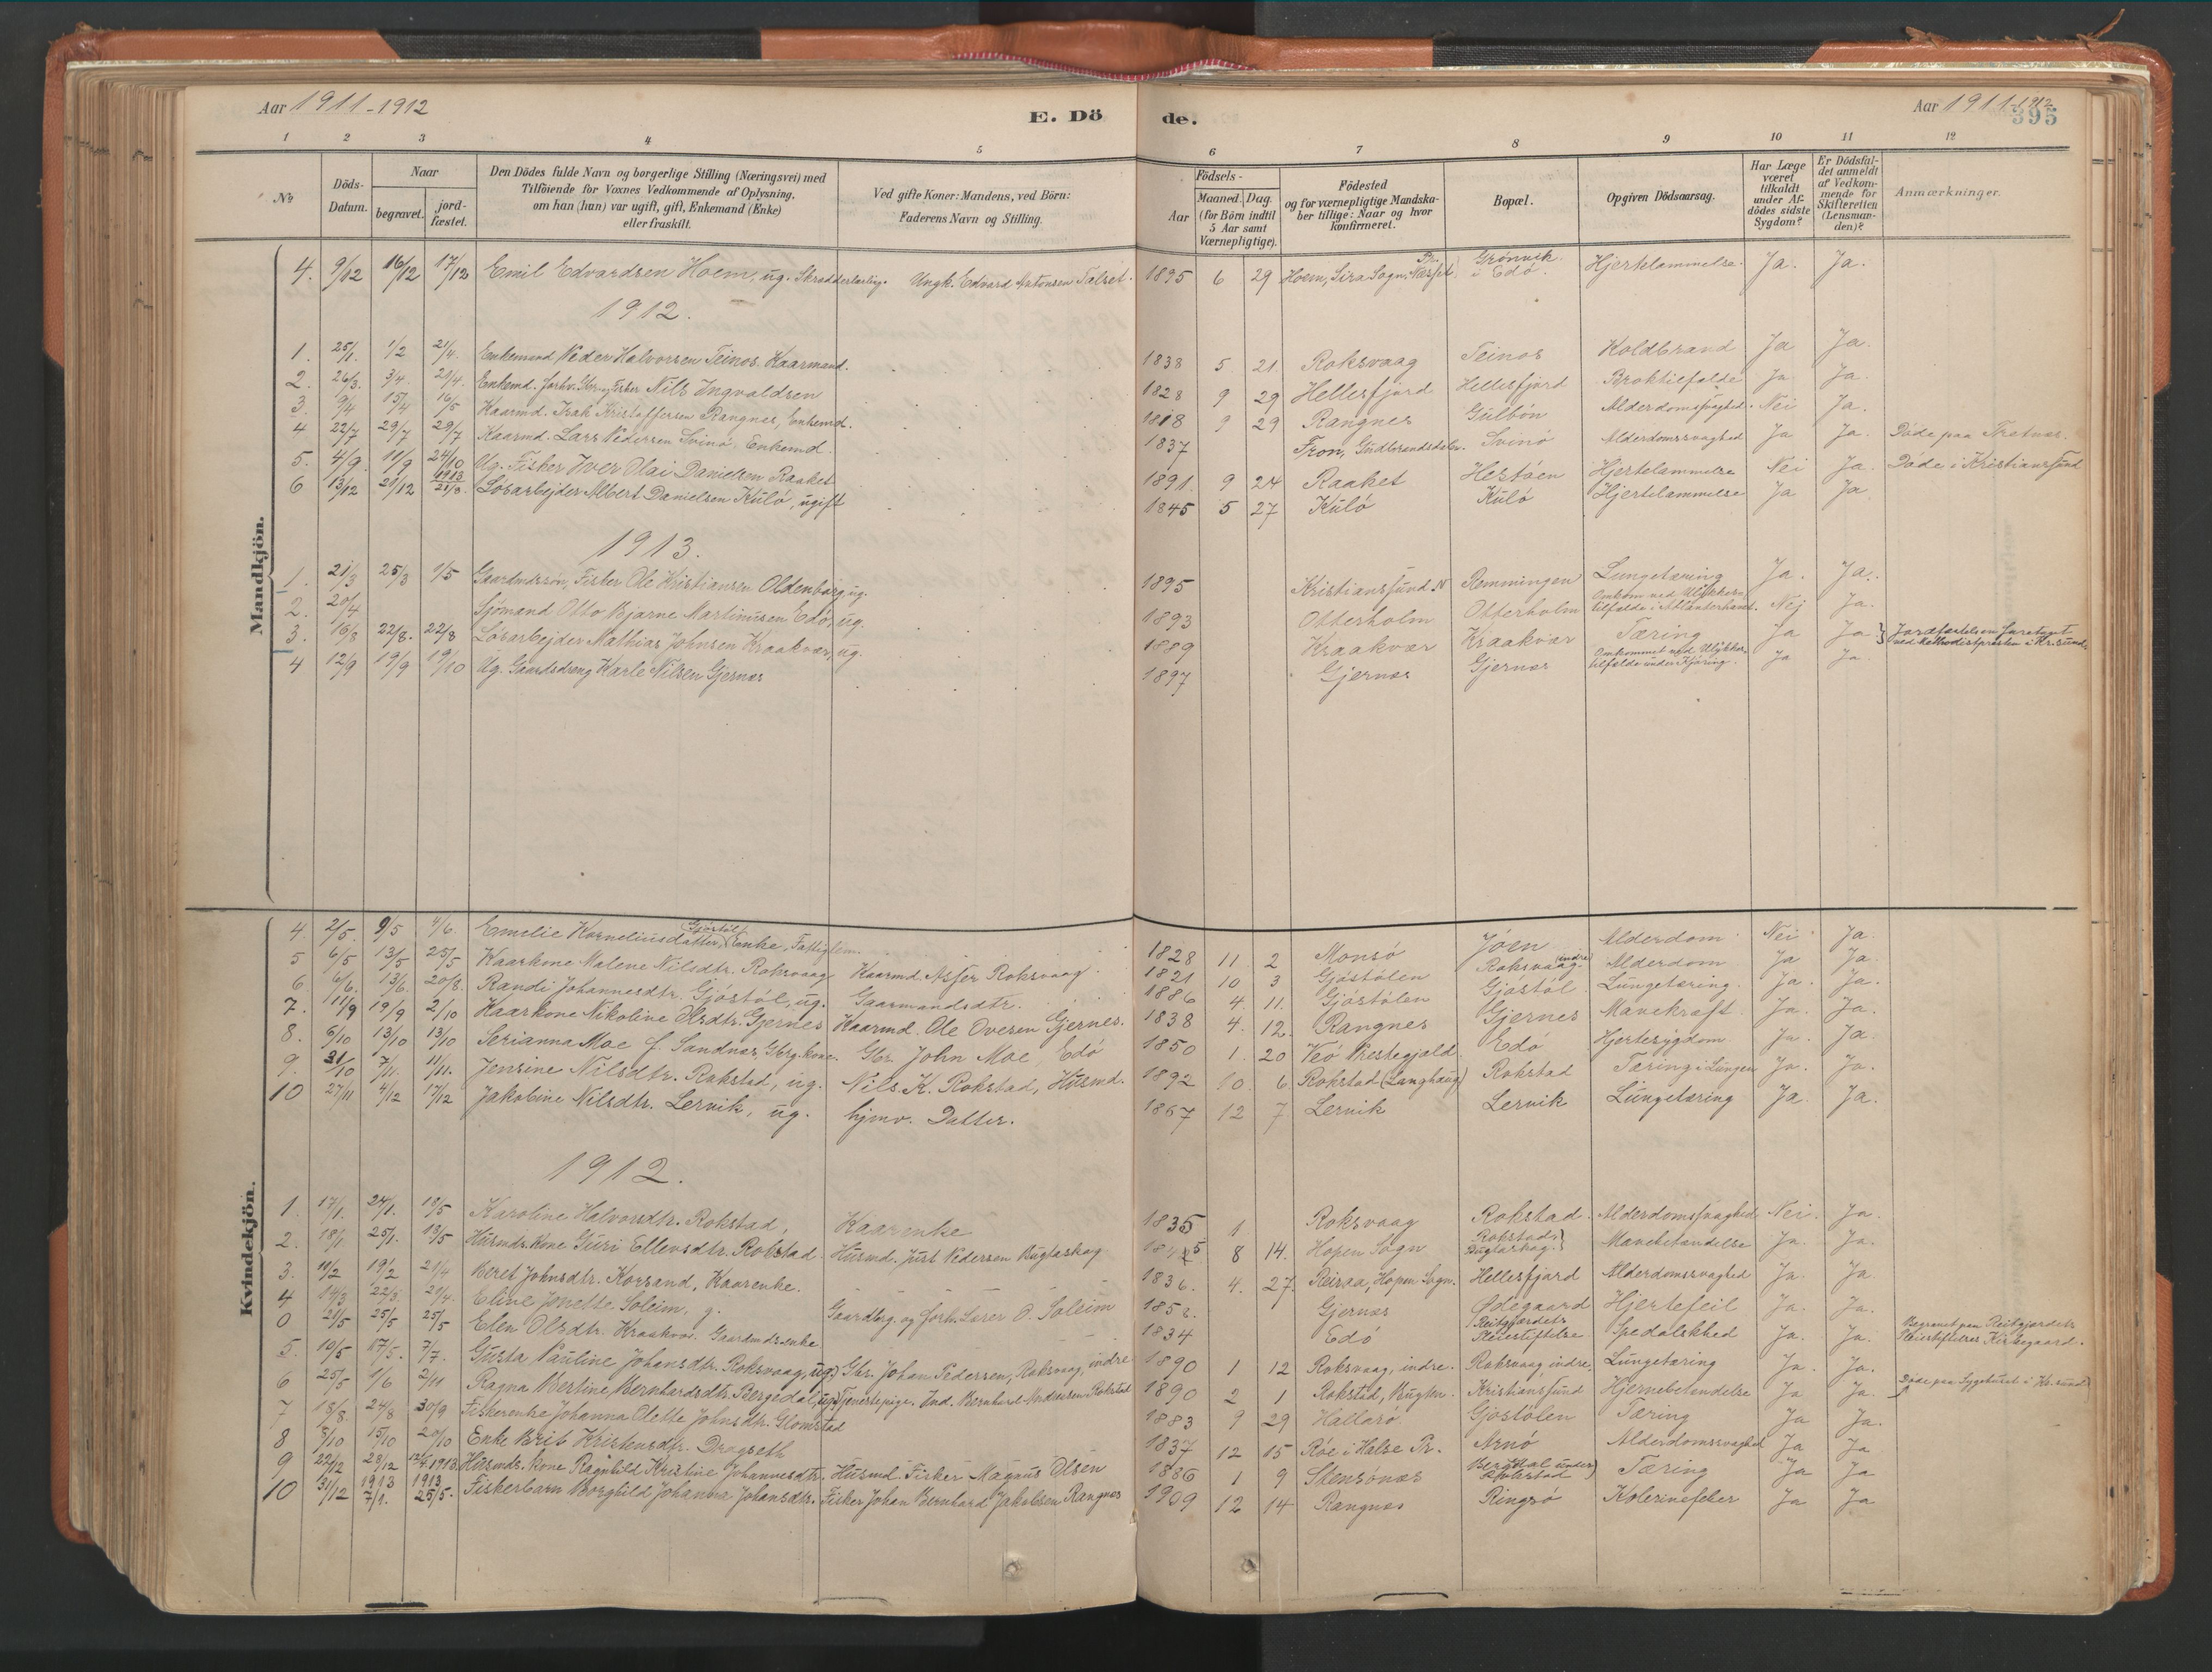 Aar 1911-1912
E. Dö
de.
Aar 1911-1912
395
1 2 3 4 5 6 7 8 9 10 11 12
No
Döds-Datum.
Naar
begravet.
jord-fæstet.
Den Dödes fulde Navn og borgerlige Stilling (Næringsvei) med
Tilföiende for Voxnes Vedkommende af Oplysning,
om han (hun) var ugift, gift, Enkemand (Enke)
eller fraskilt.
Ved gifte Koner: Mandens, ved Börn:
Faderens Navn og Stilling.
Födsels-
Aar
Maaned. Dag.
(for Börn indtil
5 Aar samt
Værnepligtige).
Födested
og for værnepligtige Mandska-
ber tillige: Naar og hvor
konfirmeret.
Bopæl.
Opgiven Dödsaarsag.
Har Læge
været
tilkaldt
under Af-
dödes sidste
Sygdom?
Er Dödsfal-
det anmeldt
af Vedkom-
mende for
Skifteretten
(Lensman-
den)?
Anmærkninger.
Mandkjön.
4. 9/12 16/12 17/12 Emil Edvardsen Hoem, ug. Skrædderlærling. Ungk. Edvard Antonsen 1895 6 29 Hoem, Sira Sogn, Nesset Pr. Grönvik i Edö. Hjertelammelse. Ja. Ja.
1912.
1. 25/1. 1/2 21/4. Enkemand Peder Halvorsen Teinos. Kaarmand. 1838 5 21 Roksvaag Teinos Koldbrand Ja Ja.
2. 26/3. 3/4. 21/4. Enkemd. forhv. Gbr. og Fisker Nils Ingvaldsen 1828 9 29 Hellesfjord Hellesfjord Broktilfælde Ja Ja.
3. 9/4 15/4 16/5 Kaarmd. Isak Kristoffersen Rangnes, Enkemd. 1818 9 29 Rangnes Gulbön Alderdomssvaghed. Nei Ja.
4 22/7 29/7 29/7 Kaarmd. Lars Pedersen Svinö, Enkemd. 1837 Fron, Gudbrandsdalen. Svinö Alderdomssvaghed Ja Ja. Döde paa
5. 4/9. 11/9 24/10 Ug. Fisker Iver Olai Danielsen Raaket 1891. 9 24 Raaket Hestöen Hjertelammelse Nei Ja. Döde i Kristianssund
6 13/12 21/12 1913 21/3. Lösarbejder Albert Danielsen Kulö, ugift 1845 5 27 Kulö Kulö Hjertelammelse Ja Ja
1913.
1. 21/3 25/3 1/5 Gaardmssön, Fisker Ole Kristiansen Oldenborg, ug. 1895 Kristianssund N Remmingen Lungetæring Ja. Ja.
2. 20/4 Sjömand Otto Bjarne Martinusen Edö, ug. 1893 Otterholm Otterholm Omkom ved Ulykkes-tilfælde i Atlanterhavet. Nej Ja.
3. 16/8 22/8. 22/8 Lösarbejder Mathias Johnsen Kraakvær, ug. 1889 Kraakvær Kraakvær Tæring Ja Ja Jordfæstelsen foretaget ved Methodistpresten i Kr.sund.
4 12/9 19/9 19/10 Ug. Gaardsdreng Karle Nilsen Gjernes 1897 Gjernes Gjernes Omkommet ved Ulykkes-tilfælde under Kjöring. Ja Ja
Kvindekjön.
4. 2/5. 9/5 4/6. Emelie Korneliusdatter, Gjöstöl Enke, Fattiglem. 1828 11 2 Monsö Jöen Alderdom Nei Ja.
5 6/5 13/5 25/5 Kaarkone Malene Nilsdtr. Roksvaag Kaarmd. Asser Roksvaag. 1821 10 3 Gjöstölen Roksvaag (indre) Alderdom Ja Ja.
6. 6/6. 13/6. 20/8. Randi Johannesdtr. Gjöstöl, ug. Gaarmandsdtr. 1886 4 11. Gjöstölen Gjöstöl. Lungetæring. Ja. Ja.
7. 11/9 19/9 2/10 Kaarkone Nikoline Olsdtr. Gjernes Kaarmd. Ole Ovesen Gjernes. 1838 4. 12. Rangnes Gjernes Mavekræft. Ja. Ja.
8. 6/10 13/10 13/10 Serianna Moe f. Sandnes, Gbrg. kone. Gbr. John Moe Edö 1850 1. 20 Veö Prestegjeld Edö Hjertesygdom. Ja. Ja.
9. 31/10 7/11. 11/11. Jensine Nilsdtr. Rokstad, ug. Nils K. Rokstad, Husmd. 1892 10. 6 Rokstad (Langhaug) Rokstad Tæring i Lungen Ja. Ja.
10 27/11 4/12 17/12 Jakobine Nilsdtr. Lervik, ug. hjmv. Datter. 1867 12 7 Lervik Lervik Lungetæring Ja. Ja.
1912.
1. 17/1. 24/1. 13/5 Karoline Halvorsdtr. Rokstad, Kaarenke 1835 1 Roksvaag Rokstad. Alderdomssvaghed Nei. Ja.
2. 18/1 25/1. 13/5 Husmds. Kone Guri Ellensdtr. Rokstad Husmd. Just Pedersen Bugtaskag 8 14. Hopen Sogn Rokstad, Bugtaskag. Mavebetændelse Ja. Ja.
3. 11/2 19/2 21/4 Beret Johnsdtr. Korsand, Kaarenke. 1836. 4. 27. Reiraa, Hopen Sogn. Hellesfjord Alderdomssvaghed Ja. Ja
4 14/3 22/3. 21/4. Eline Jonette Soleim, g. Gaardbrg. og forh. O. Soleim Gjernes Ødegaard Hjertefeil Ja. Ja.
0 21/5 25/5 25/5 Elen Olsdtr. Kraakvær Gaardmdsenke 1834 Edö Reitgjærdets Pleiestiftelse Spedalskhed Ja. Ja. Begravet paa Reitgjerdets Pleiestiftelses Kirkegaard.
5. 10/5 17/5. 7/7. Gusta Pauline Johansdtr. Roksvaag, ug. Gbr. Johan Pedersen, Roksvaag, indre 1890 1 12 Roksvaag, indre. Roksvaag indre. Lungetæring Ja. Ja.
6 25/5 1/6 2/11 Ragna Bertine Bernhardsdtr. Bergedal, ug. Tjenestepige. Ind. Bernhard Andreasen Rokstad 1890 2 1 Rokstad, Bugten. Kristianssund Hjernebetændelse Ja Ja. Döde paa Sygehuset i Kr.sund
7 18/8. 24/8 30/9 Fiskerenke Johanna Olette Johnsdtr. Glomstad 1883 9 29 Hallarö Gjöstölen Tæring Ja Ja.
8 8/10 15/10 20/10 Enke Brit Kristensdtr. Dragseth 1837 12 15 Röe i Halse Pr. Arnö Alderdomssvaghed Ja Ja
9 22/12 28/12 1913. Husmds. kone Ragnhild Kristine Johannesdtr. Husmd. Fisker Magnus Olsen 1886 1 9 Stensönes Bergdal under Rokstad Tæring Ja Ja
10 31/12 1913 7/1. 1913 25/5. Fiskerbarn Borghild Johanna Johansdtr. Fisker Johan Bernhard Jakobsen Rangnes 1909 12 14 Rangnes Ringsö Kolerinefeber Ja Ja